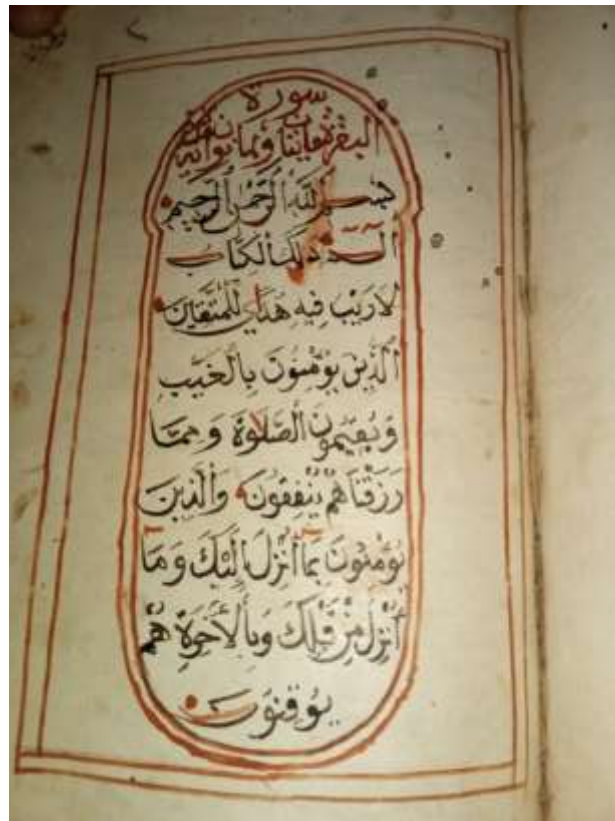 سورة
البقرة مايتان وثمانون آية
بِسْمِ اللَّهِ الرَّحْمَٰنِ الرَّحِيمِ
الٓمٓ ذَلِكَ الْكِتَابُ
لَا رَيْبَ فِيهِ هُدًى لِلْمُتَّقِينَ
الَّذِينَ يُؤْمِنُونَ بِالْغَيْبِ
وَيُقِيمُونَ الصَّلَوٰةَ وَمِمَّا
رَزَقْنَاهُمْ يُنْفِقُونَ وَالَّذِينَ
يُؤْمِنُونَ بِمَآ أُنْزِلَ إِلَيْكَ وَمَآ
أُنْزِلَ مِنْ قَبْلِكَ وَبِالْأَخِرَةِ هُمْ
يُوقِنُونَ